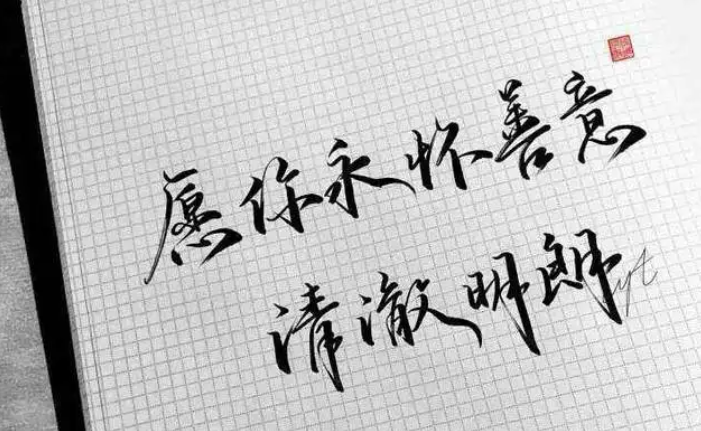 愿你永怀善意
清澈明朗
yt